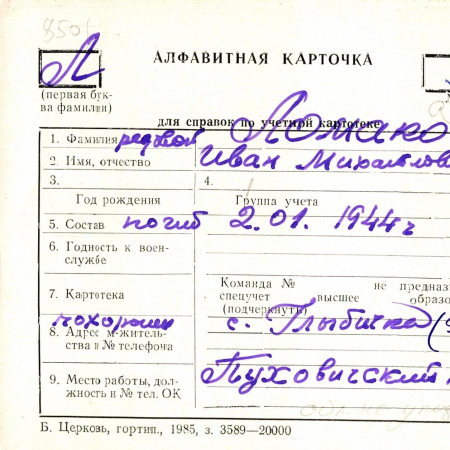 850
Л
АЛФАВИТНАЯ КАРТОЧКА
(первая бук-
ва фамилии)
для справок по учетной картотеке
1. Фамилия рядовой Ломако
2. Имя, отчество Иван Михайлов
3. 4.
Год рождения Группа учета
5. Состав погиб 2.01. 1944 г
6. Годность к воен-
службе
Команда № не предназ
7. Картотека спецучет высшее образо
(подчеркнуть)
похоронен с. Глыбичка (
8. Адрес м житель-
ства и № телефона
9. Место работы, дол- Пуховичский
жность и № тел. ОК
обл не
Б. Церковь, гортип., 1985, з. 3589—20000